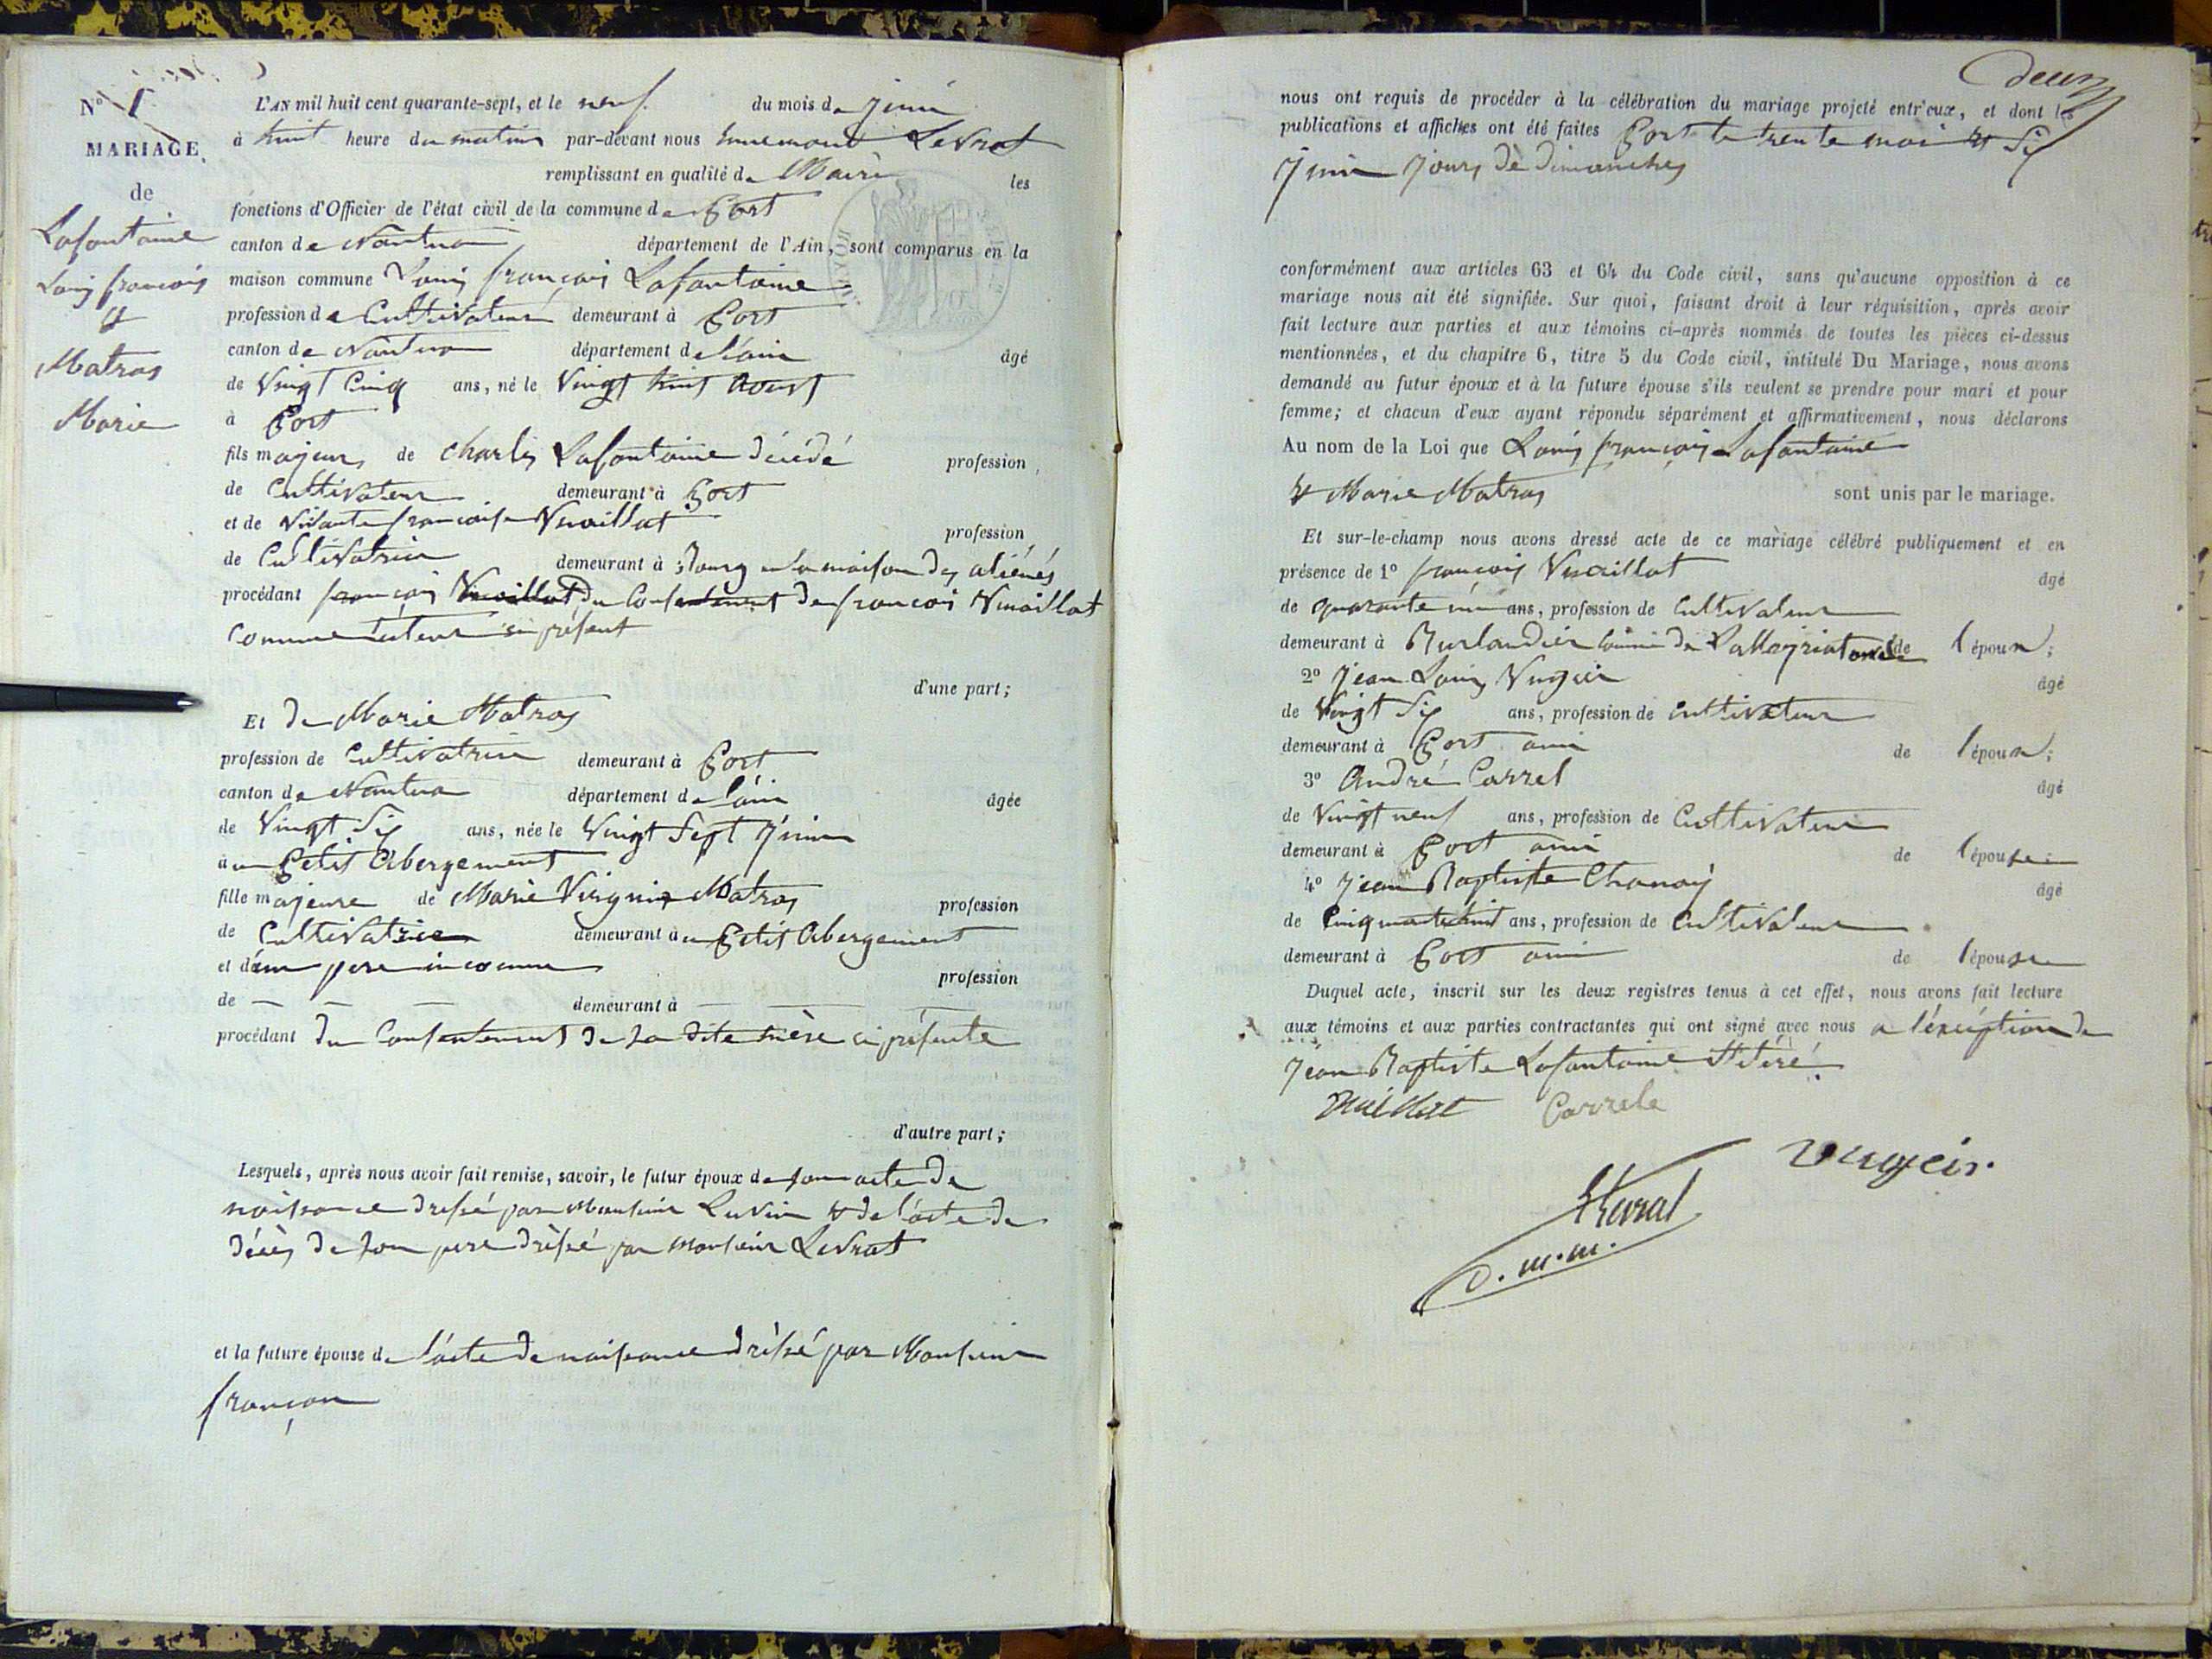 N° 1
MARIAGE
de
Lafontaine
Louis françois
et
Matras
Marie
L'AN mil huit cent quarante-sept, et le neuf du mois de juin
à huit heure du matin par-devant nous Levrat
remplissant en qualité de Maire les
fonctions d'Officier de l'état civil de la commune de Port
canton de Nantua département de l'Ain, sont comparus en la
maison commune Louis françois Lafontaine
profession de Cultivateur demeurant à Port
canton de Nantua département de l'ain âgé
de Vingt Cinq ans, né le Vingt huit Aoust
à Port
fils majeur de charles Lafontaine décédé profession
de Cultivateur demeurant à Port
et de françoise profession
de Cultivatrice demeurant à Bourg en la maison des aliénés
procédant françois du Consentement de françois
Comme tuteur si présent
d'une part;
Et de Marie Matras
profession de Cultivatrice demeurant à Port
canton de Nantua département de l'ain âgée
de Vingt Six ans, née le Vingt Sept juin
au Petit Abergement
fille majeure de Marie Matras profession
de Cultivatrice demeurant à au Petit Abergement
et d'un pere inconnu profession
de — — — demeurant à — — —
procédant du Consentement de la dite mère ci présente
d'autre part;
Lesquels, après nous avoir fait remise, savoir, le futur époux de son acte de
naissance dressé par Monsieur & de l'acte de
décès de son pere dressé par Monsieur Levrat
et la future épouse de l'acte de naissance dréssé par Monsieur
françon
deux
nous ont requis de procéder à la célébration du mariage projeté entr'eux, et dont les
publications et affiches ont été faites Port le trente mai et Six
juin jours de dimanches
conformément aux articles 63 et 64 du Code civil, sans qu'aucune opposition à ce
mariage nous ait été signifiée. Sur quoi, faisant droit à leur réquisition, après avoir
fait lecture aux parties et aux témoins ci-après nommés de toutes les pièces ci-dessus
mentionnées, et du chapitre 6, titre 5 du Code civil, intitulé Du Mariage, nous avons
demandé au futur époux et à la future épouse s'ils veulent se prendre pour mari et pour
femme; et chacun d'eux ayant répondu séparément et affirmativement, nous déclarons
Au nom de la Loi que Louis françois Lafontaine
& Marie Matras sont unis par le mariage.
Et sur-le-champ nous avons dressé acte de ce mariage célébré publiquement et en
présence de 1° françois âgé
de quarante ans, profession de Cultivateur
demeurant à de l'époux;
2° Jean Louis âgé
de Vingt Six ans, profession de cultivateur
demeurant à Port ami de l'époux;
3° André Carrel âgé
de Vingt neuf ans, profession de Cultivateur
demeurant à Port ami de l'épouse;
4° Jean Baptiste âgé
de Cinquante huit ans, profession de Cultivateur
demeurant à Port ami de l'épouse
Duquel acte, inscrit sur les deux registres tenus à cet effet, nous avons fait lecture
aux témoins et aux parties contractantes qui ont signé avec nous a l'exception de
Jean Baptiste Lafontaine